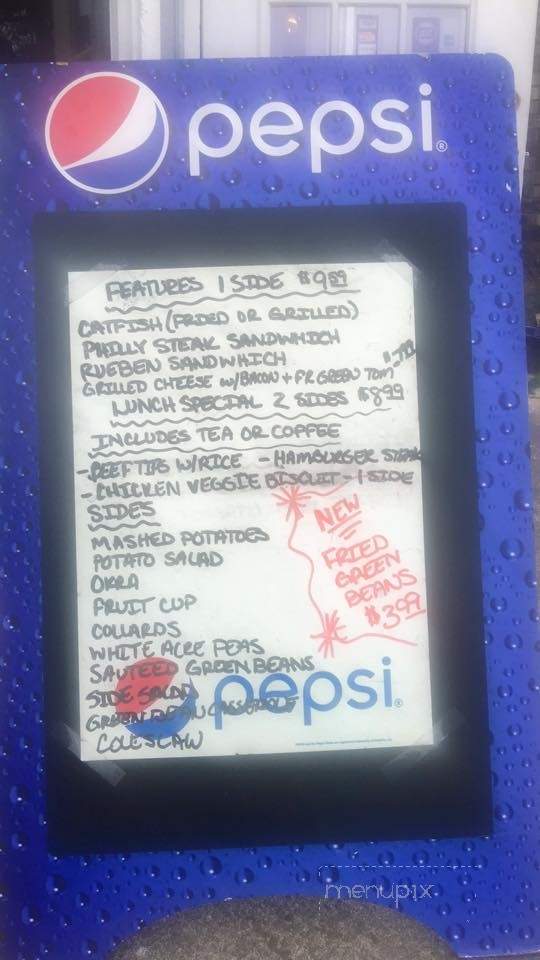 pepsi®
FEATURES 1 SIDE $9.59
CATFISH (FRIED OR GRILLED)
PHILLY STEAK SANDWHICH
RUEBEN SANDWHICH
GRILLED CHEESE W/BACON + FR GREEN TOM
LUNCH SPECIAL 2 SIDES $8.99
INCLUDES TEA OR COFFEE
- BEEF TIPS W/RICE - HAMBURGER STEAK
- CHICKEN VEGGIE BISCUIT - 1 SIDE
SIDES
MASHED POTATOES
POTATO SALAD
OKRA
FRUIT CUP
COLLARDS
WHITE ACRE PEAS
SAUTEED GREEN BEANS
SIDE SALAD
GREEN BEAN CASSEROLE
COLESLAW
NEW
FRIED
GREEN
BEANS
$3.99
pepsi®
menupix